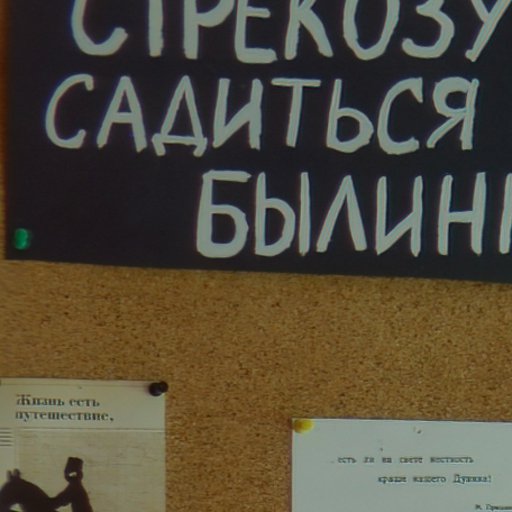 СТРЕКОЗУ
САДИТЬСЯ
БЫЛИН
Жизнь есть
путешествие.
есть ли на свете местность
краше нашего Дувика!